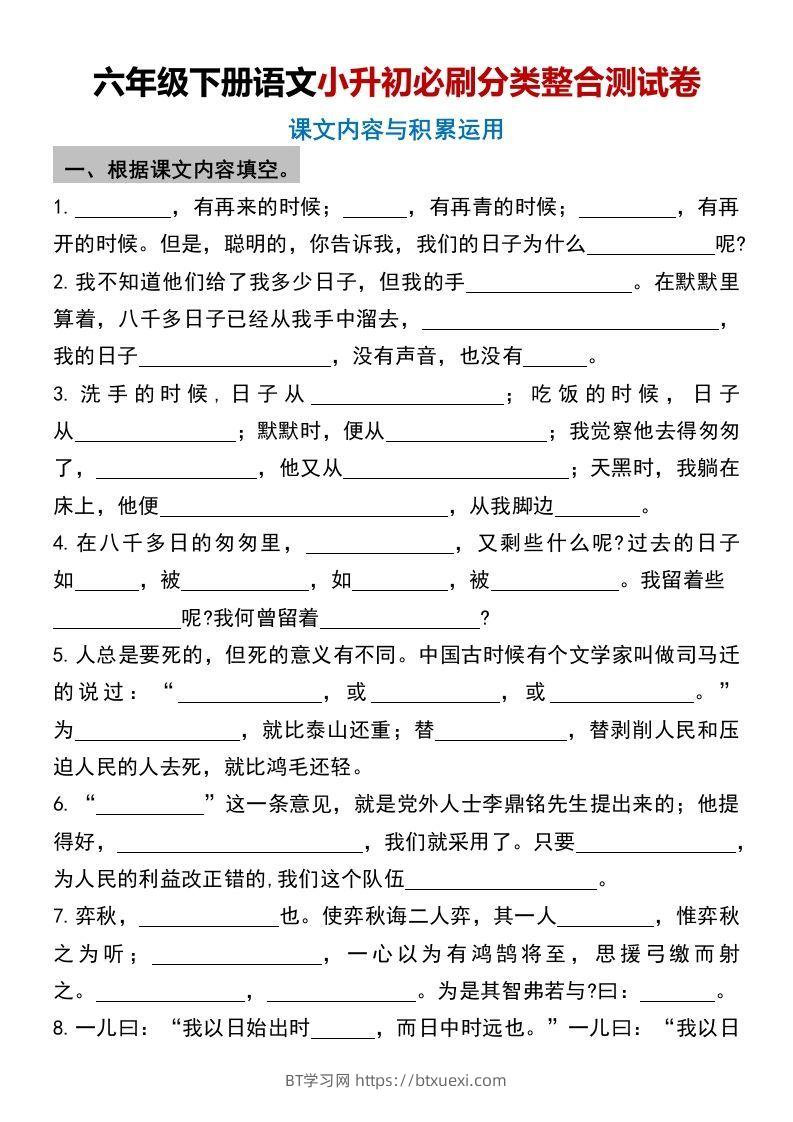 六年级下册语文小升初必刷分类整合测试卷
课文内容与积累运用
一、根据课文内容填空。
1. _________，有再来的时候；______，有再青的时候；_________，有再
开的时候。但是，聪明的，你告诉我，我们的日子为什么____________呢?
2. 我不知道他们给了我多少日子，但我的手________________。在默默里
算着，八千多日子已经从我手中溜去，____________________________，
我的日子__________________，没有声音，也没有______。
3. 洗手的时候,日子从__________________；吃饭的时候，日子
从_______________；默默时，便从_______________；我觉察他去得匆匆
了，_______________，他又从_____________________；天黑时，我躺在
床上，他便___________________________，从我脚边________。
4. 在八千多日的匆匆里，______________，又剩些什么呢?过去的日子
如______，被____________，如_________，被____________。我留着些
____________呢?我何曾留着_______________?
5. 人总是要死的，但死的意义有不同。中国古时候有个文学家叫做司马迁
的说过：“_____________，或____________，或_____________。”
为_______________，就比泰山还重；替____________，替剥削人民和压
迫人民的人去死，就比鸿毛还轻。
6. “__________”这一条意见，就是党外人士李鼎铭先生提出来的；他提
得好，_______________________，我们就采用了。只要_______________，
为人民的利益改正错的,我们这个队伍__________________。
7. 弈秋，_____________也。使弈秋诲二人弈，其一人_________，惟弈秋
之为听；________________，一心以为有鸿鹄将至，思援弓缴而射
之。______________，______________。为是其智弗若与?曰：_______。
8. 一儿曰：“我以日始出时______，而日中时远也。”一儿曰：“我以日
BT学习网 https://btxuexi.com